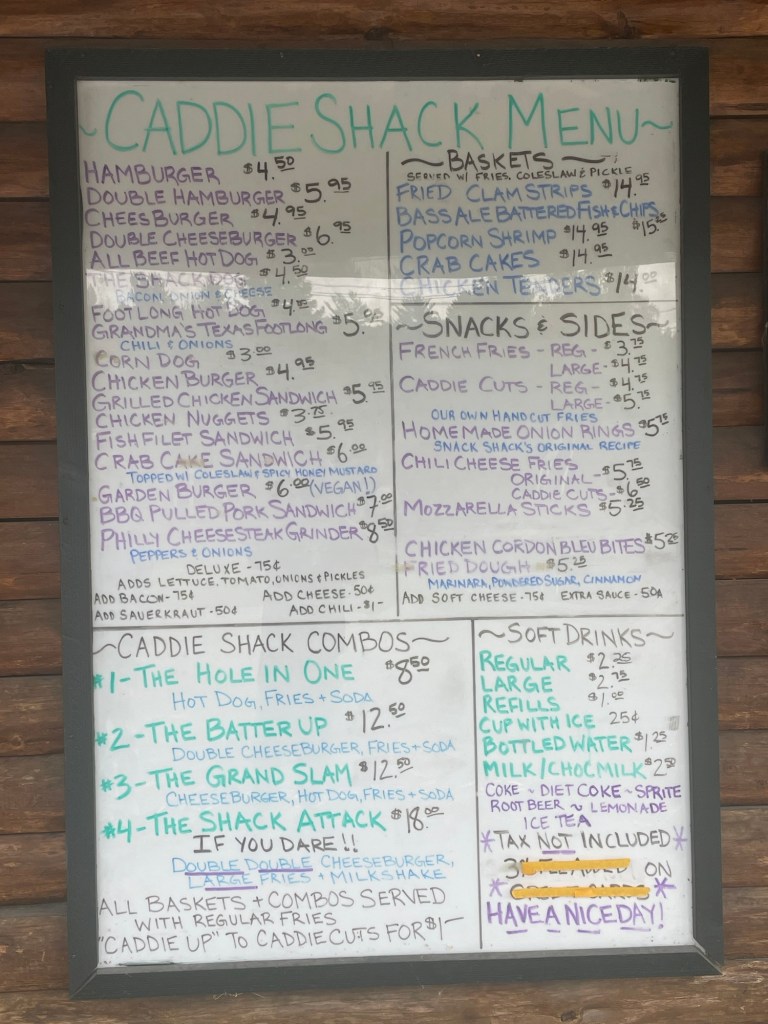 ~CADDIE SHACK MENU~
HAMBURGER $4.50
DOUBLE HAMBURGER $5.95
CHEESBURGER $4.95
DOUBLE CHEESEBURGER $6.95
ALL BEEF HOT DOG $3.00
THE SHACK DOG $4.50
BACON, ONION & CHEESE
FOOT LONG HOT DOG
GRANDMA'S TEXAS FOOTLONG
CHILI & ONIONS
CORN DOG $3.00
CHICKEN BURGER $4.95
GRILLED CHICKEN SANDWICH $5.95
CHICKEN NUGGETS $3.75
FISH FILET SANDWICH $5.95
CRAB CAKE SANDWICH $6.00
TOPPED W/ COLESLAW & SPICY HONEY MUSTARD
GARDEN BURGER $6.00 (VEGAN!)
BBQ PULLED PORK SANDWICH $7.00
PHILLY CHEESESTEAK GRINDER $8.50
PEPPERS & ONIONS
DELUXE - 75¢
ADDS LETTUCE, TOMATO, ONIONS & PICKLES
ADD BACON - 75¢ ADD CHEESE - 50¢
ADD SAUERKRAUT - 50¢ ADD CHILI - $1-
~BASKETS~
SERVED W/ FRIES, COLESLAW & PICKLE
FRIED CLAM STRIPS $14.95
BASS ALE BATTERED FISH & CHIPS
POPCORN SHRIMP $14.95
CRAB CAKES $14.95
CHICKEN TENDERS $14.00
~SNACKS & SIDES~
FRENCH FRIES - REG - $3.75
LARGE - $4.75
CADDIE CUTS - REG - $4.75
LARGE - $5.75
OUR OWN HAND CUT FRIES
HOMEMADE ONION RINGS $5.75
SNACK SHACK'S ORIGINAL RECIPE
CHILI CHEESE FRIES
ORIGINAL - $5.75
CADDIE CUTS - $6.50
MOZZARELLA STICKS $5.25
CHICKEN CORDON BLEU BITES $5.25
FRIED DOUGH $5.25
MARINARA, POWDERED SUGAR, CINNAMON
ADD SOFT CHEESE - 75¢ EXTRA SAUCE - 50¢
~CADDIE SHACK COMBOS~
#1 - THE HOLE IN ONE $8.50
HOT DOG, FRIES + SODA
#2 - THE BATTER UP $12.50
DOUBLE CHEESEBURGER, FRIES + SODA
#3 - THE GRAND SLAM $12.50
CHEESEBURGER, HOT DOG, FRIES + SODA
#4 - THE SHACK ATTACK $18.00
IF YOU DARE!!
DOUBLE DOUBLE CHEESEBURGER,
LARGE FRIES + MILKSHAKE
ALL BASKETS + COMBOS SERVED
WITH REGULAR FRIES
"CADDIE UP" TO CADDIE CUTS FOR $1-
~SOFT DRINKS~
REGULAR $2.25
LARGE $2.75
REFILLS $1.00
CUP WITH ICE 25¢
BOTTLED WATER $1.25
MILK/CHOC MILK $2.50
COKE ~ DIET COKE ~ SPRITE
ROOT BEER ~ LEMONADE
ICE TEA
*TAX NOT INCLUDED*
ON
HAVE A NICE DAY!